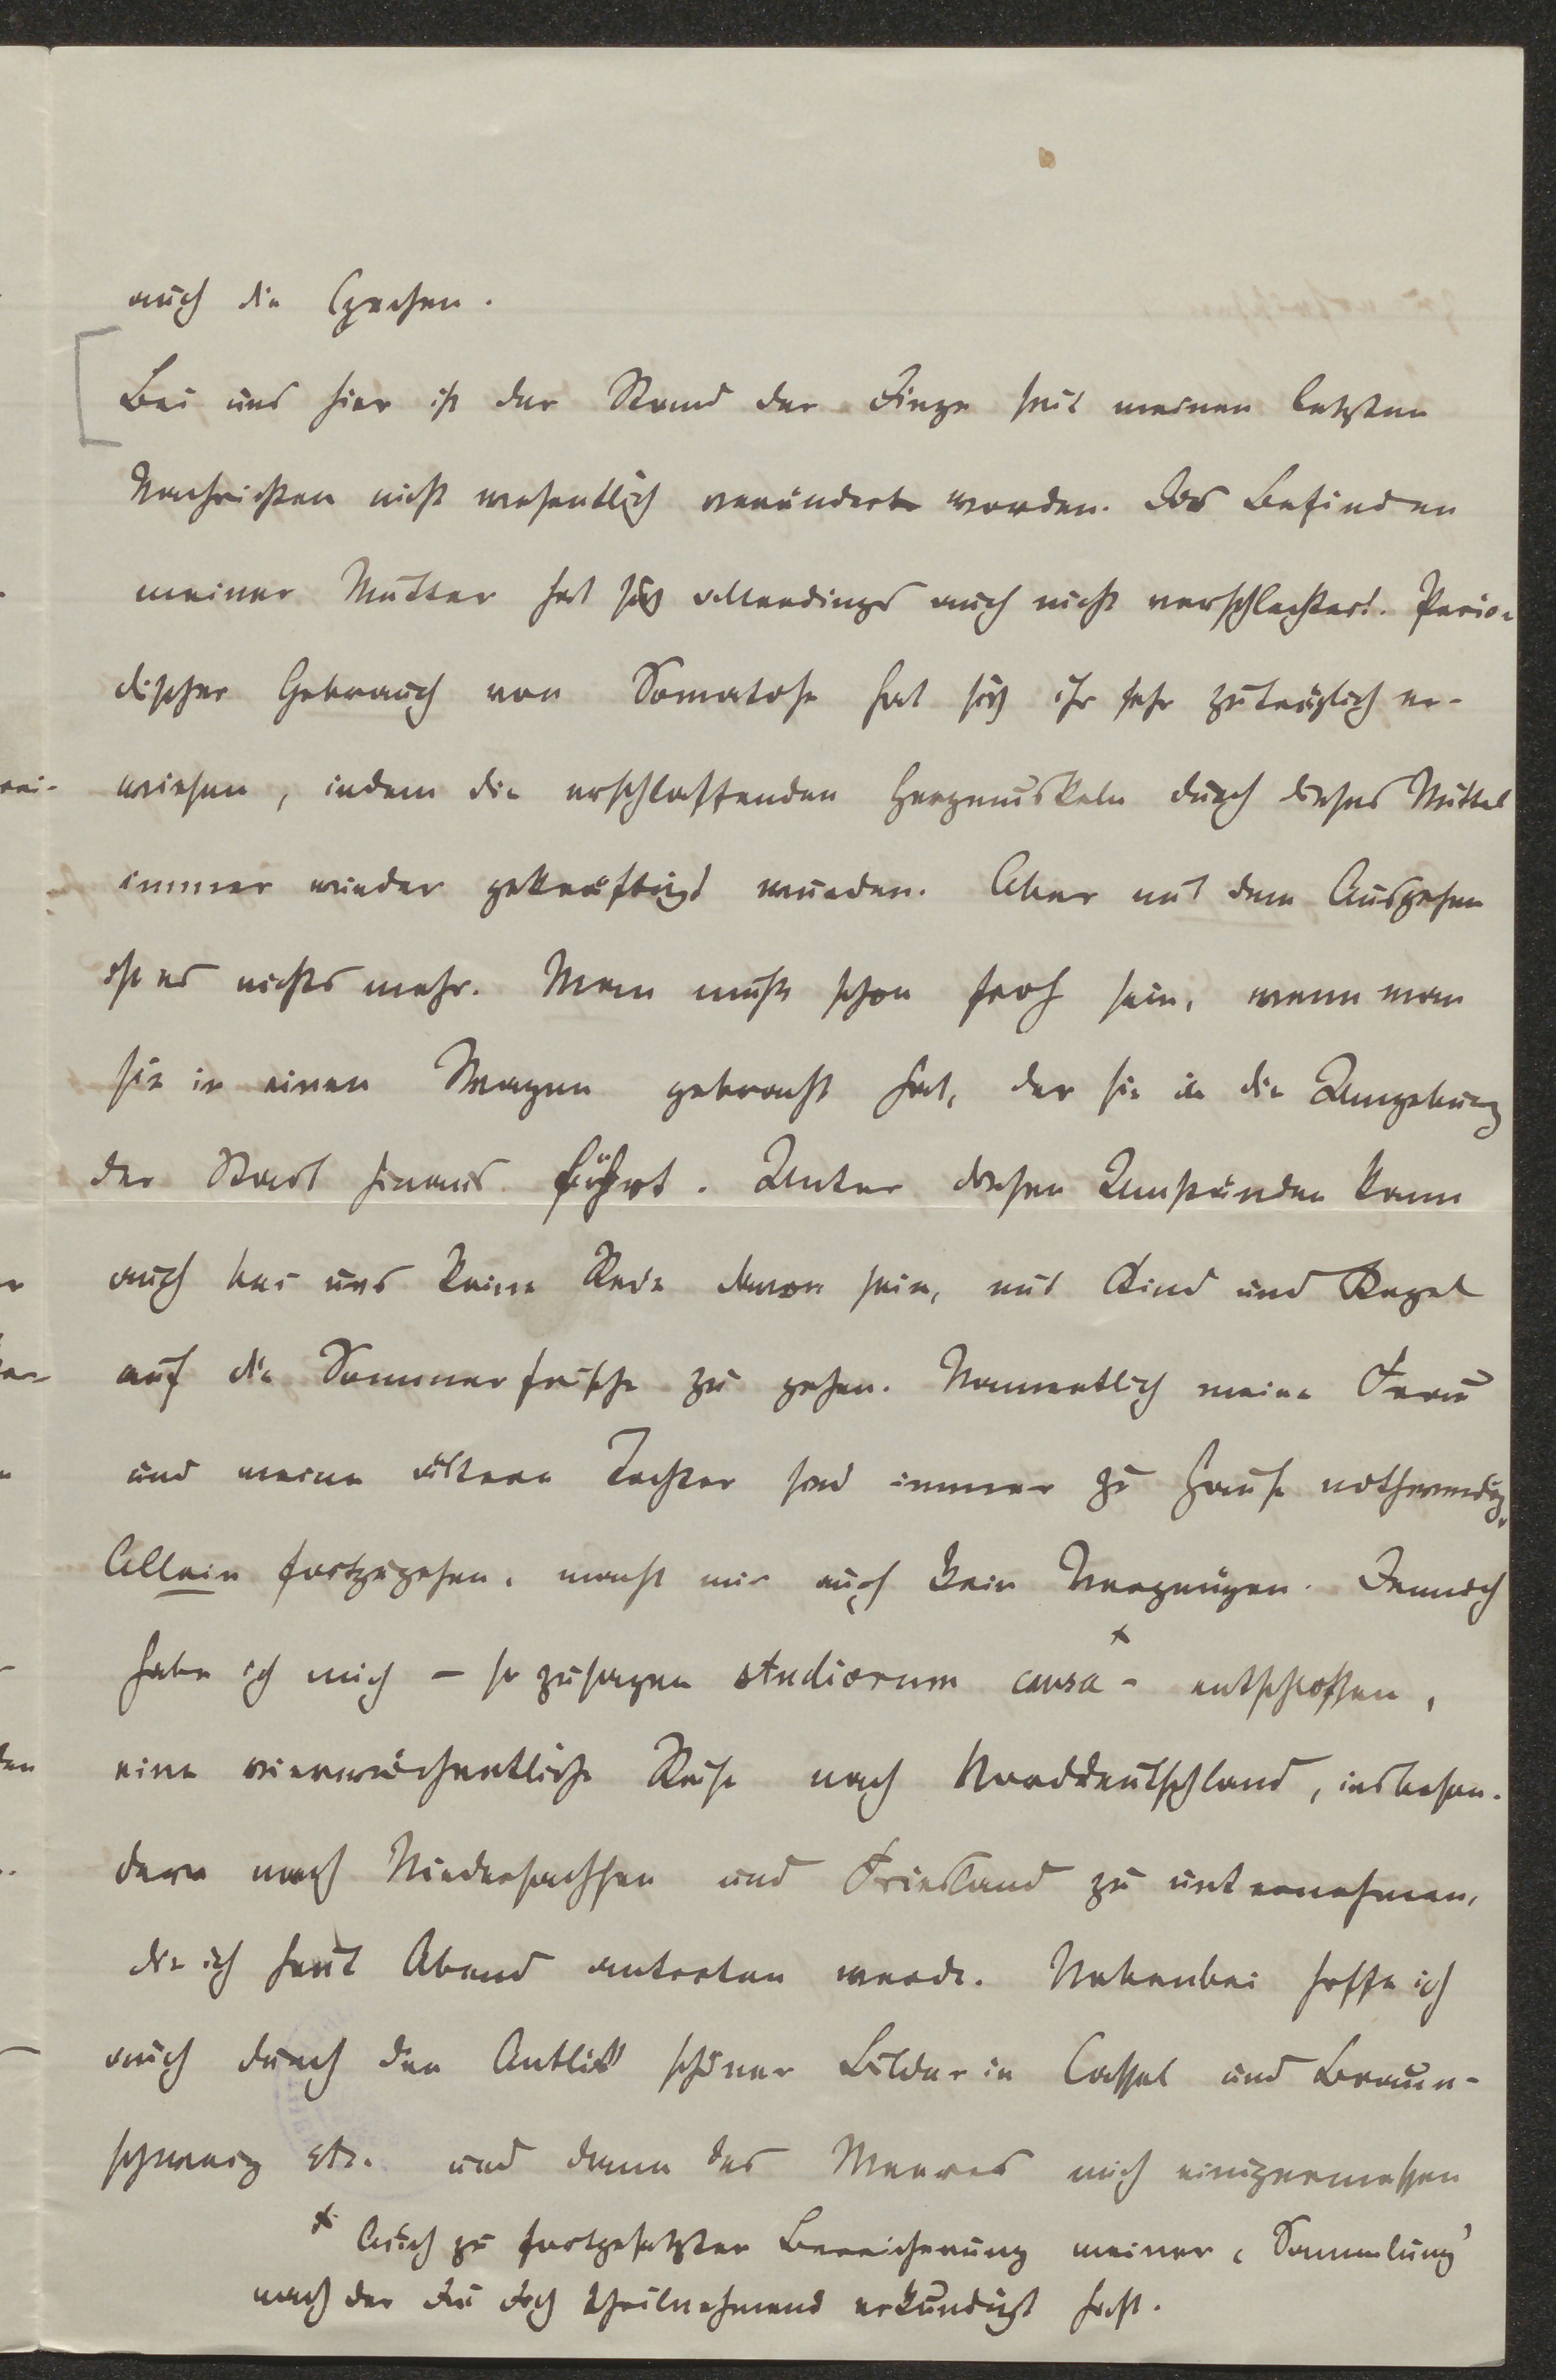 auch die Czechen.
Bei uns hier ist der Stand der Dinge seit meinen letzten
Nachrichten nicht wesentlich verändert worden. Das Befinden
meiner Mutter hat sich allerdings auch nicht verschlechtert. Perio-
discher Gebrauch von Somatose hat sich ihr sehr zuträglich er-
wiesen, indem die erschlaffenden Herzmuskeln durch dieses Mittel
immer wieder gekräftigt wurden. Aber mit dem Ausgehen
ist es nichts mehr. Man muß schon froh sein, wenn man
sie in einen Wagen gebracht hat, der sie in die Umgebung
der Stadt hinaus führt. Unter diesen Umständen kann
auch bei uns keine Rede davon sein, mit Kind und Kegel
auf die Sommerfrische zu gehen. Namentlich meine Frau
und meine ältere Tochter sind immer zu Hause nothwendig.
Allein fortzugehen, macht mir auch kein Vergnügen. Dennoch
habe ich mich – so zusagen studiorum causa x – entschlossen,
eine vierwöchentliche Reise nach Norddeutschland, insbeson-
dere nach Niedersachsen und Friesland zu unternehmen,
die ich heut Abend antreten werde. Nebenbei hoffe ich
auch durch den Anblick schöner Bilder in Cassel und Braun-
schweig etc. und dann des Meeres mich einigermassen
x Auch zu fortgesetzter Bereicherung meiner ‚Sammlung'
nach der Du Dich theilnehmend erkundigt hast.